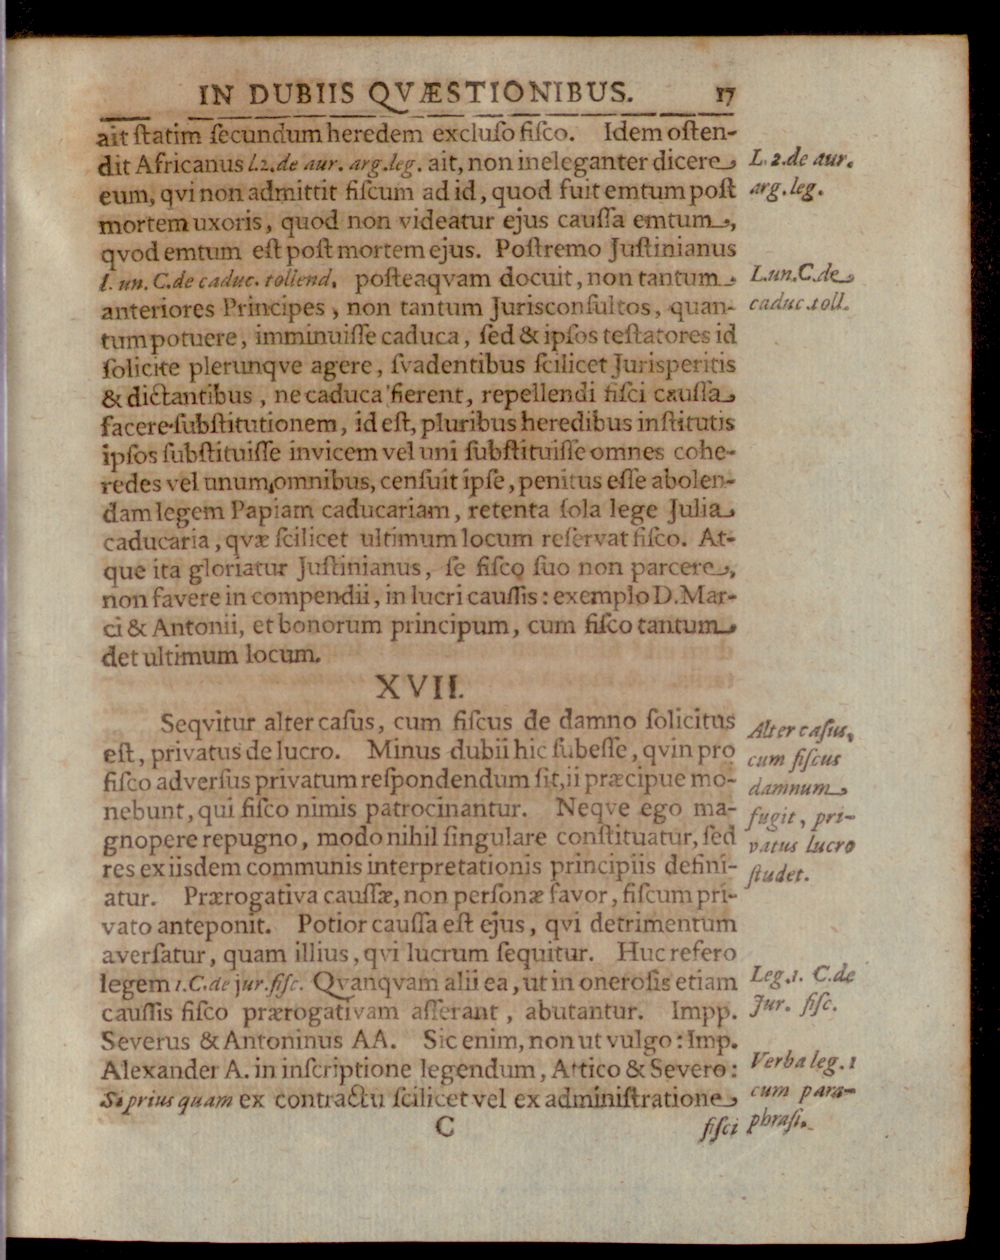 IN DUBIIS QVÆSTIONIBUS. 17
ait ſtatim ſecundum heredem excluſo fiſco. Idem oſten-
dit Africanus l.2.de aur. arg.leg. ait, non ineleganter dicere
eum, qvi non admittit fiſcum ad id, quod fuit emtum poſt
mortem uxoris, quod non videatur ejus cauſſa emtum,
qvod emtum eſt poſt mortem ejus. Poſtremo Juſtinianus
l. un. C.de caduc. tollend. poſteaqvam docuit, non tantum
anteriores Principes, non tantum Jurisconſultos, quan-
tum potuere, imminuiſſe caduca, ſed & ipſos teſtatores id
ſolicite plerunqve agere, ſvadentibus ſcilicet Jurisperitis
& dictantibus, ne caduca fierent, repellendi fiſci cauſſa
facere ſubſtitutionem, id eſt, pluribus heredibus inſtitutis
ipſos ſubſtituiſſe invicem vel uni ſubſtituiſſe omnes cohe-
redes vel unum omnibus, cenſuit ipſe, penitus eſſe abolen-
dam legem Papiam caducariam, retenta ſola lege Julia
caducaria, qvæ ſcilicet ultimum locum reſervat fiſco. At-
que ita gloriatur Juſtinianus, ſe fiſco ſuo non parcere,
non favere in compendii, in lucri cauſſis: exemplo D. Mar-
ci & Antonii, et bonorum principum, cum fiſco tantum
det ultimum locum.
XVII.
Seqvitur alter caſus, cum fiſcus de damno ſolicitus
eſt, privatus de lucro. Minus dubii hic ſubeſſe, qvin pro
fiſco adverſus privatum reſpondendum ſit, ii præcipue mo-
nebunt, qui fiſco nimis patrocinantur. Neqve ego ma-
gnopere repugno, modo nihil ſingulare conſtituatur, ſed
res ex iisdem communis interpretationis principiis defini-
atur. Prærogativa cauſſæ, non perſonæ favor, fiſcum pri-
vato anteponit. Potior cauſſa eſt ejus, qvi detrimentum
averſatur, quam illius, qvi lucrum ſequitur. Huc refero
legem 1.C.de jur.fiſc. Qvanqvam alii ea, ut in oneroſis etiam
cauſſis fiſco prærogativam aſſerant, abutantur. Impp.
Severus & Antoninus AA. Sic enim, non ut vulgo: Imp.
Alexander A. in inſcriptione legendum, Attico & Severo:
Si prius quam ex contractu ſcilicet vel ex adminiſtratione
C fiſci
L. 2. de aur.
arg. leg.
L. un. C. de
caduc. toll.
Alter caſus,
cum fiſcus
damnum
fugit, pri-
vatus lucro
ſtudet.
Leg. 1. C. de
Jur. fiſc.
Verba leg. 1
cum para-
phraſi.